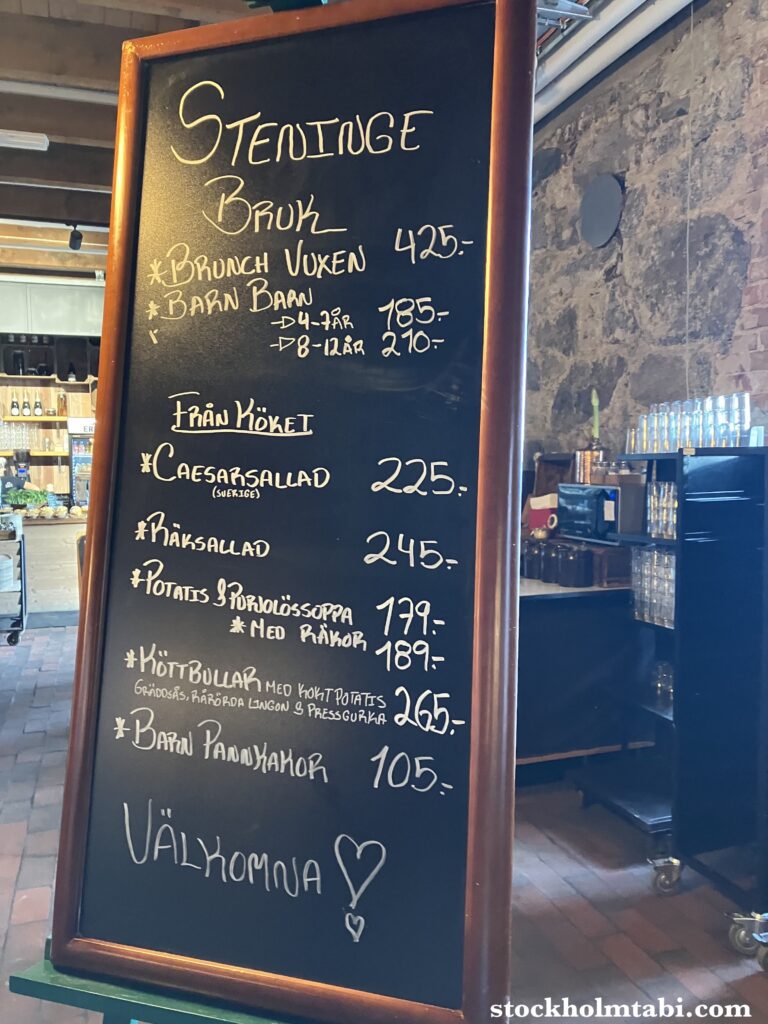 STENINGE
BRUK
* BRUNCH VUXEN 425:-
* BARN BARN
→ 4-7 ÅR 185:-
→ 8-12 ÅR 210:-
FRÅN KÖKET
* CAESARSALLAD 225:-
(SVERIGE)
* RÄKSALLAD 245:-
* POTATIS & PURJOLÖSSOPPA 179:-
* MED RÄKOR 189:-
* KÖTTBULLAR MED KOKT POTATIS
GRÄDDSÅS, RÅRÖRDA LINGON & PRESSGURKA 265:-
* BARN PANNKAKOR 105:-
VÄLKOMNA
stockholmtabi.com